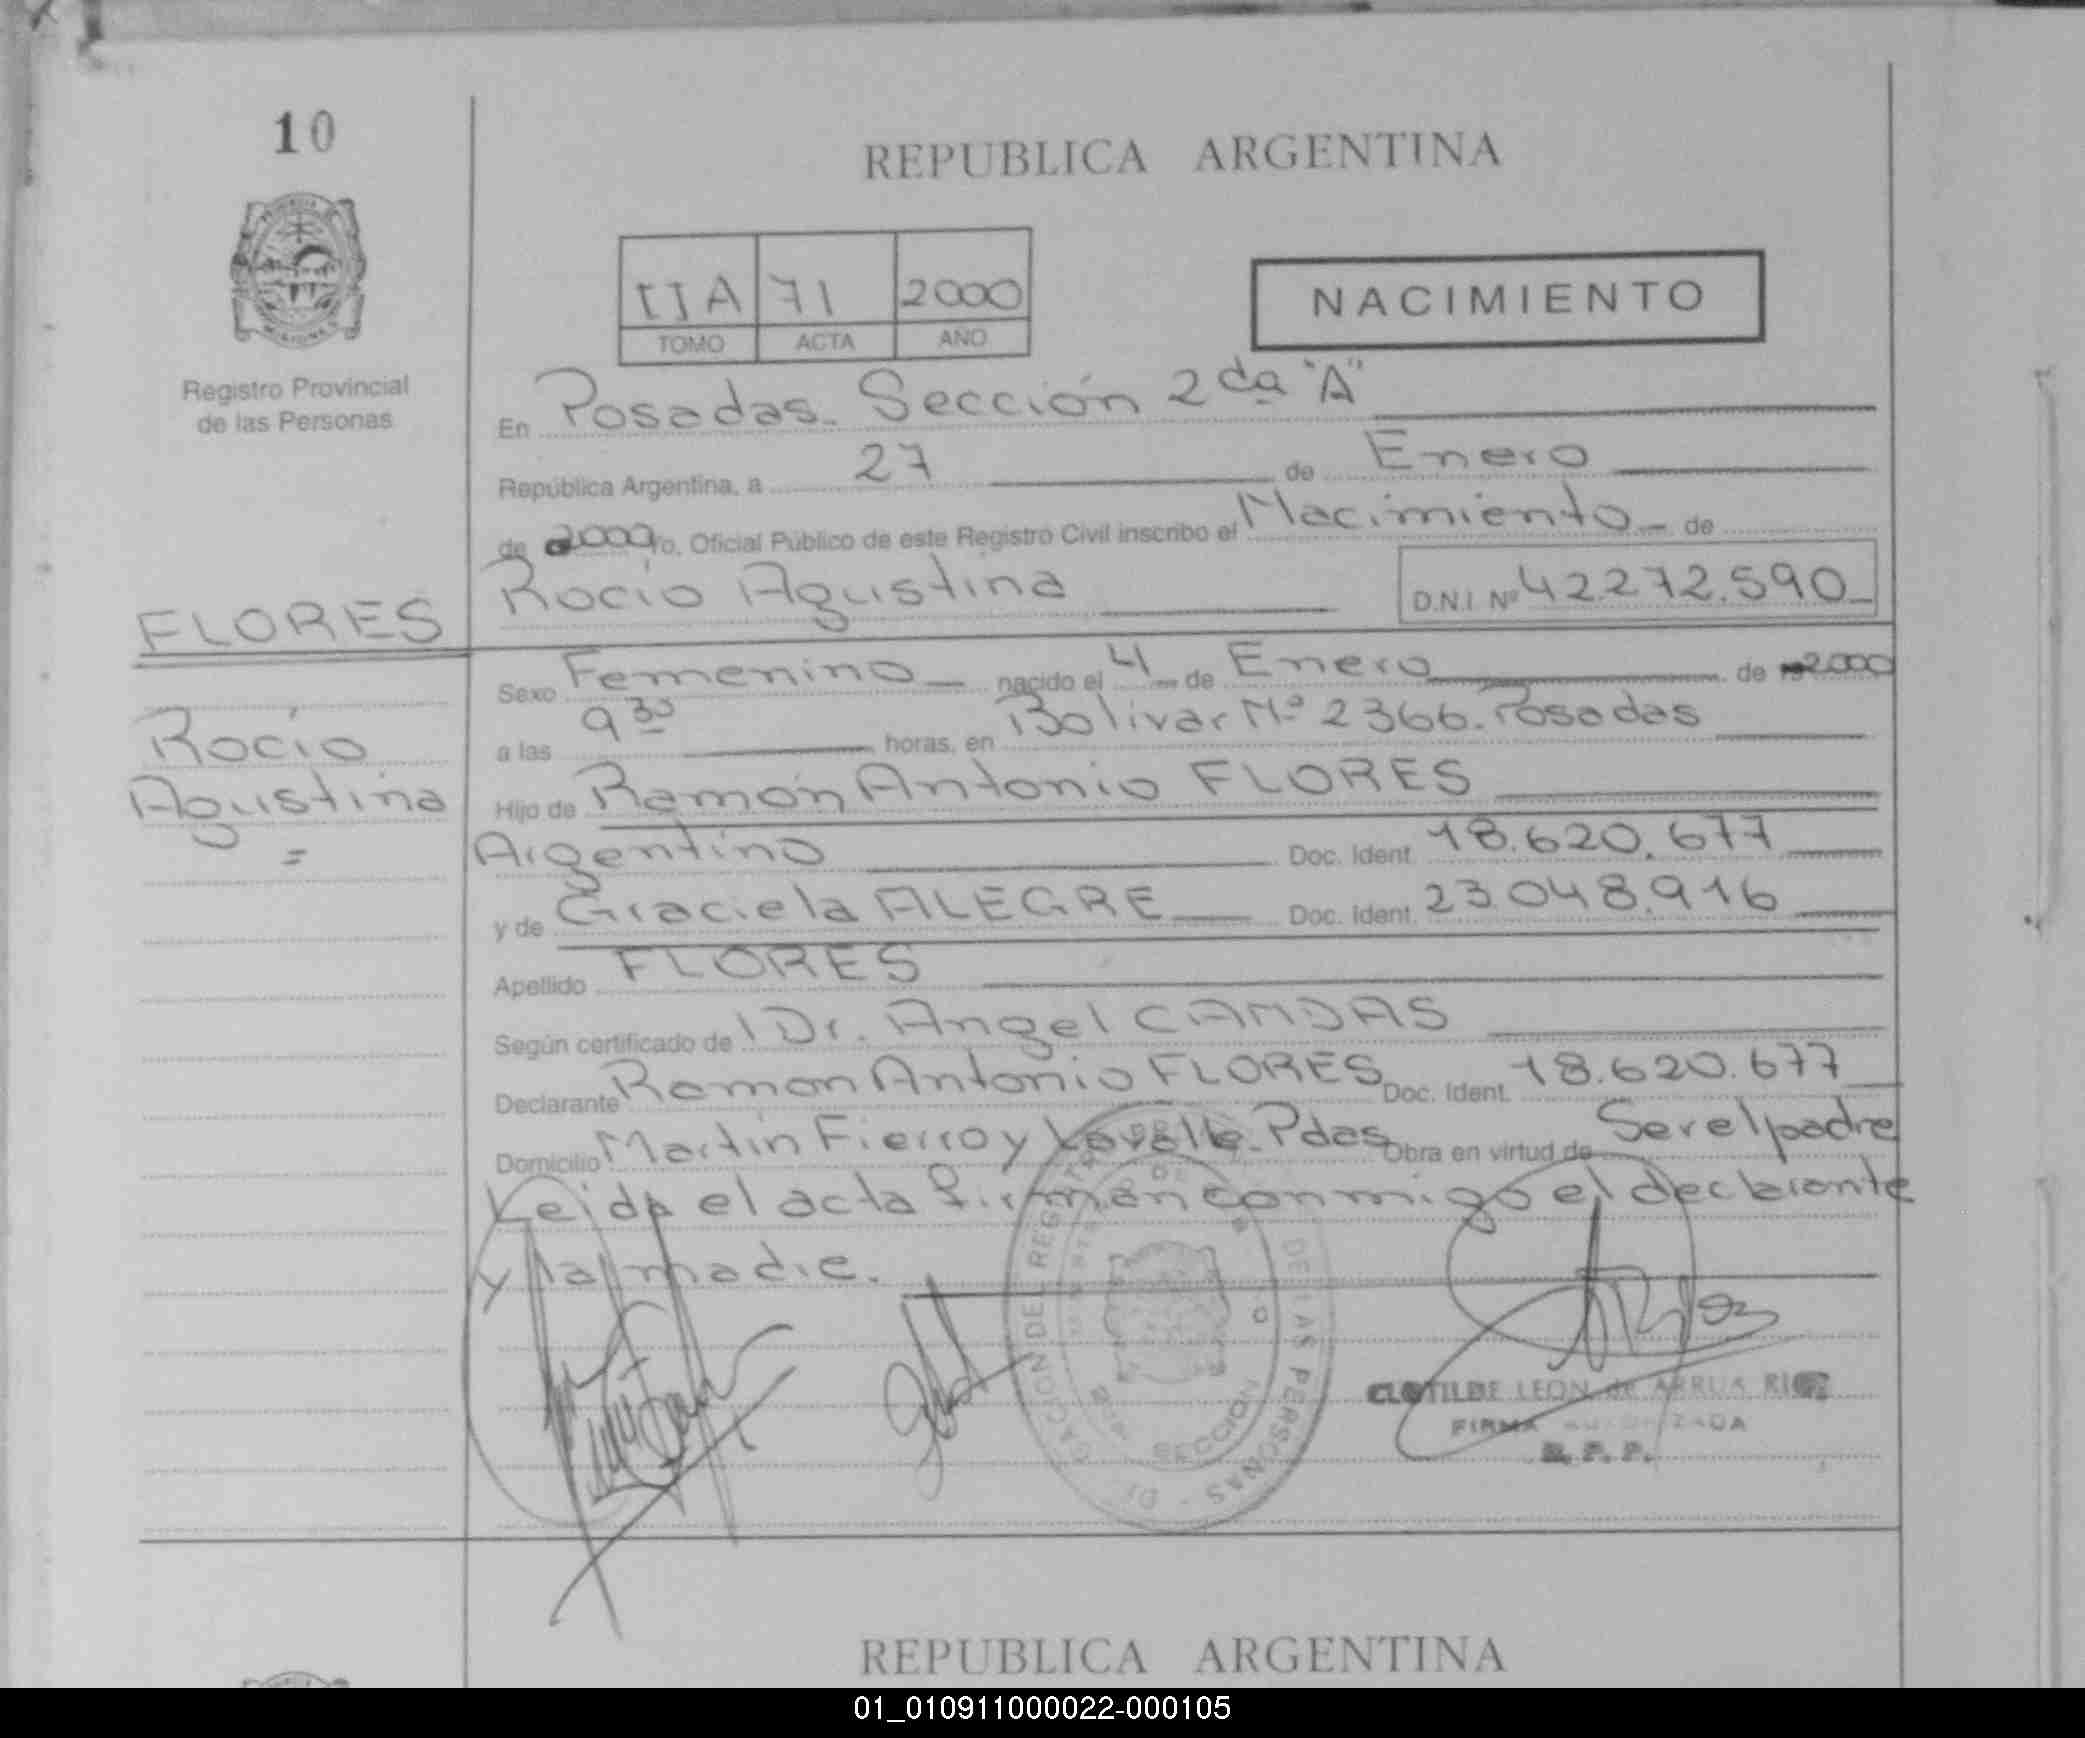 10
REPUBLICA ARGENTINA
IJA 71 2000
TOMO ACTA AÑO
NACIMIENTO
Registro Provincial
de las Personas
En Posadas. Sección 2da "A"
República Argentina, a 27 de Enero
de 2000 Yo, Oficial Público de este Registro Civil inscribo el Nacimiento de
Rocío Agustina D.N.I. Nº 42.272.590
FLORES
Rocío
Agustina
Sexo Femenino nacido el 4 de Enero de 2000
a las 9 30 horas, en Bolivar Nº 2366. Posadas
Hijo de Ramón Antonio FLORES
Argentino Doc. Ident. 18.620.677
y de Graciela ALEGRE Doc. Ident. 23.048.916
Apellido FLORES
Según certificado de Dr. Angel CANDAS
Declarante Ramon Antonio FLORES Doc. Ident. 18.620.677
Domicilio Martin Fierro y Lavalle. Pdas Obra en virtud de Ser el padre
Leida el acta firman conmigo el declarante
y la madre.
DEL REGISTRO DE LAS PERSONAS
SECCION
CLOTILDE LEON de ARRUA
FIRMA AUTORIZADA
R. P. P.
REPUBLICA ARGENTINA
01_010911000022-000105